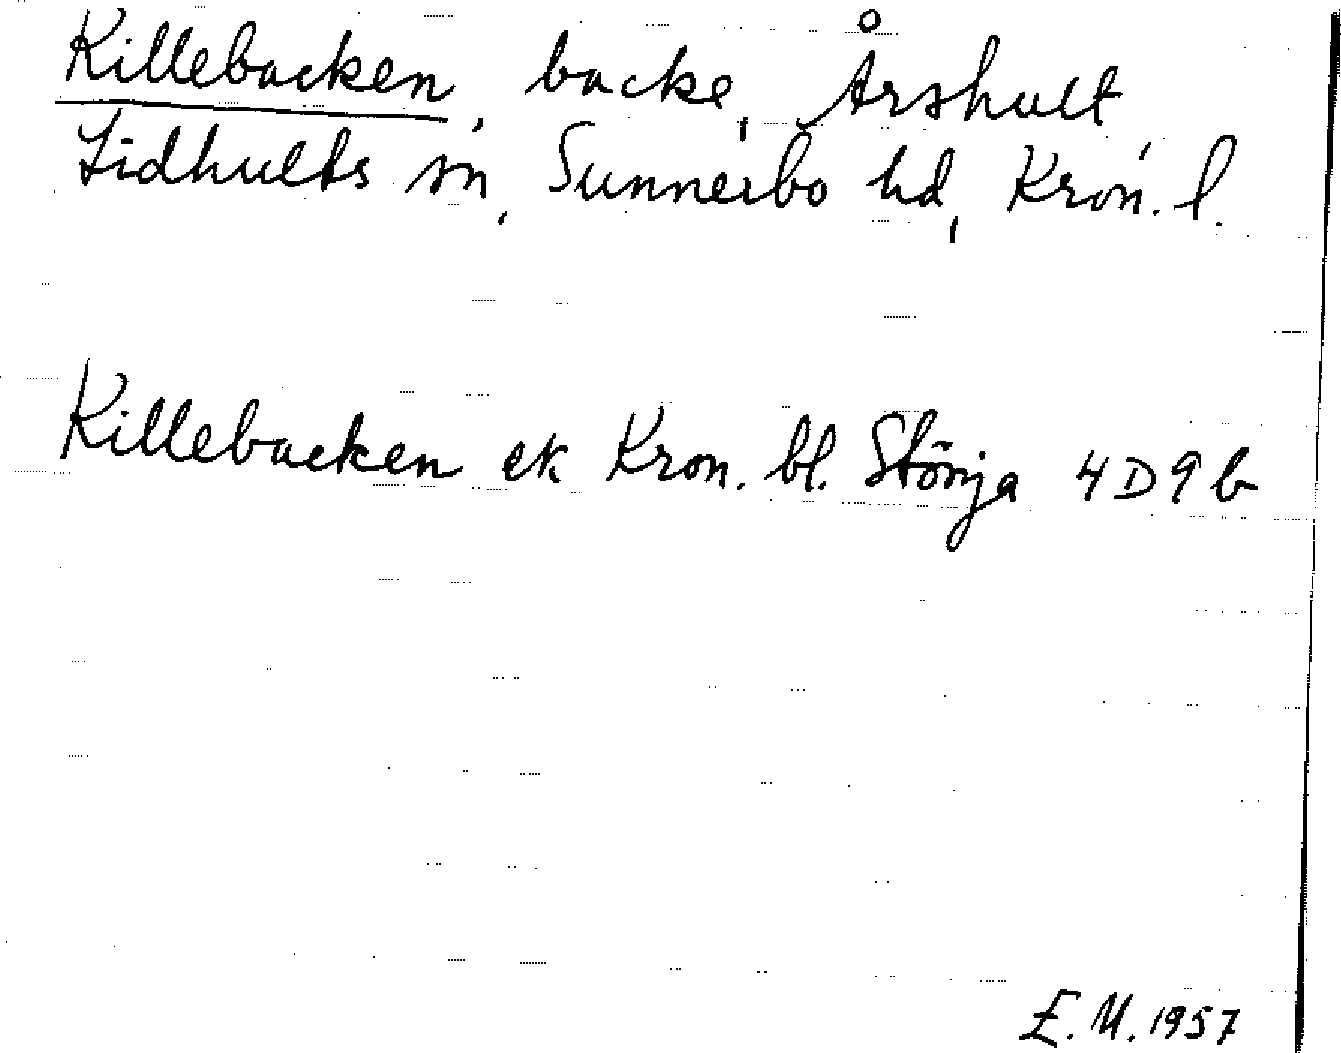 Killebacken, backe, Årshult,
Lidhults sn, Sunnerbo hd, Kron. l.
Killebacken ek Kron. bl. Stönja 4D9b
E.M. 1957